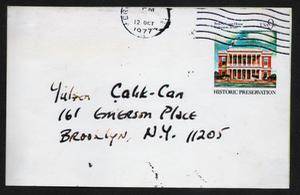 PM
12 OCT
1977
USA 9
HISTORIC PRESERVATION
Calik-Can
161 EMERSON PLACE
BROOKLYN, N.Y. 11205